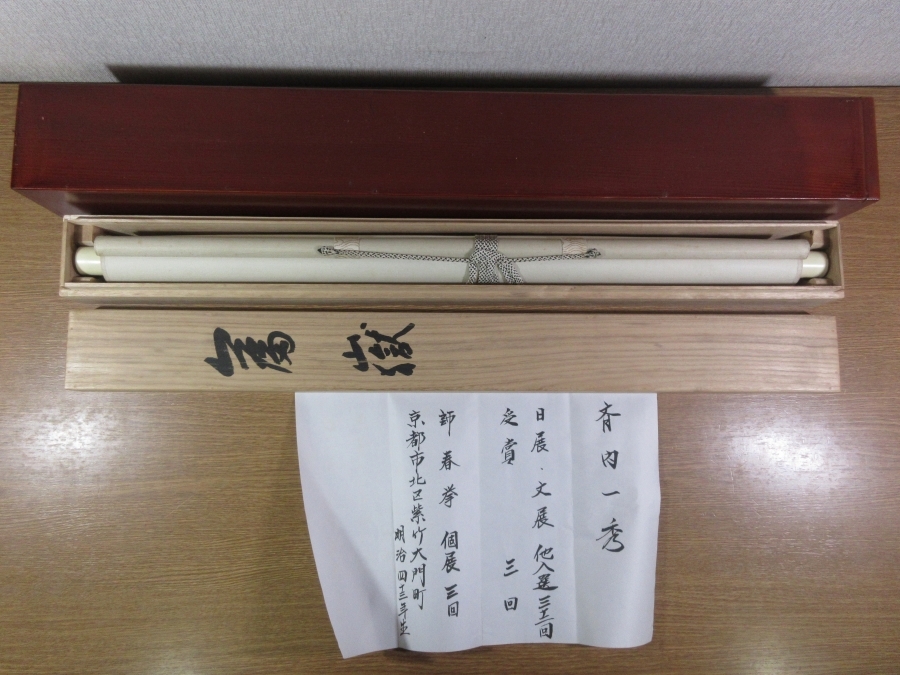 富嶽
斉内一秀
日展・文展 他入選 回
受賞 三回
師 春挙 個展 三回
京都市北区紫竹大門町
明治四十三年生